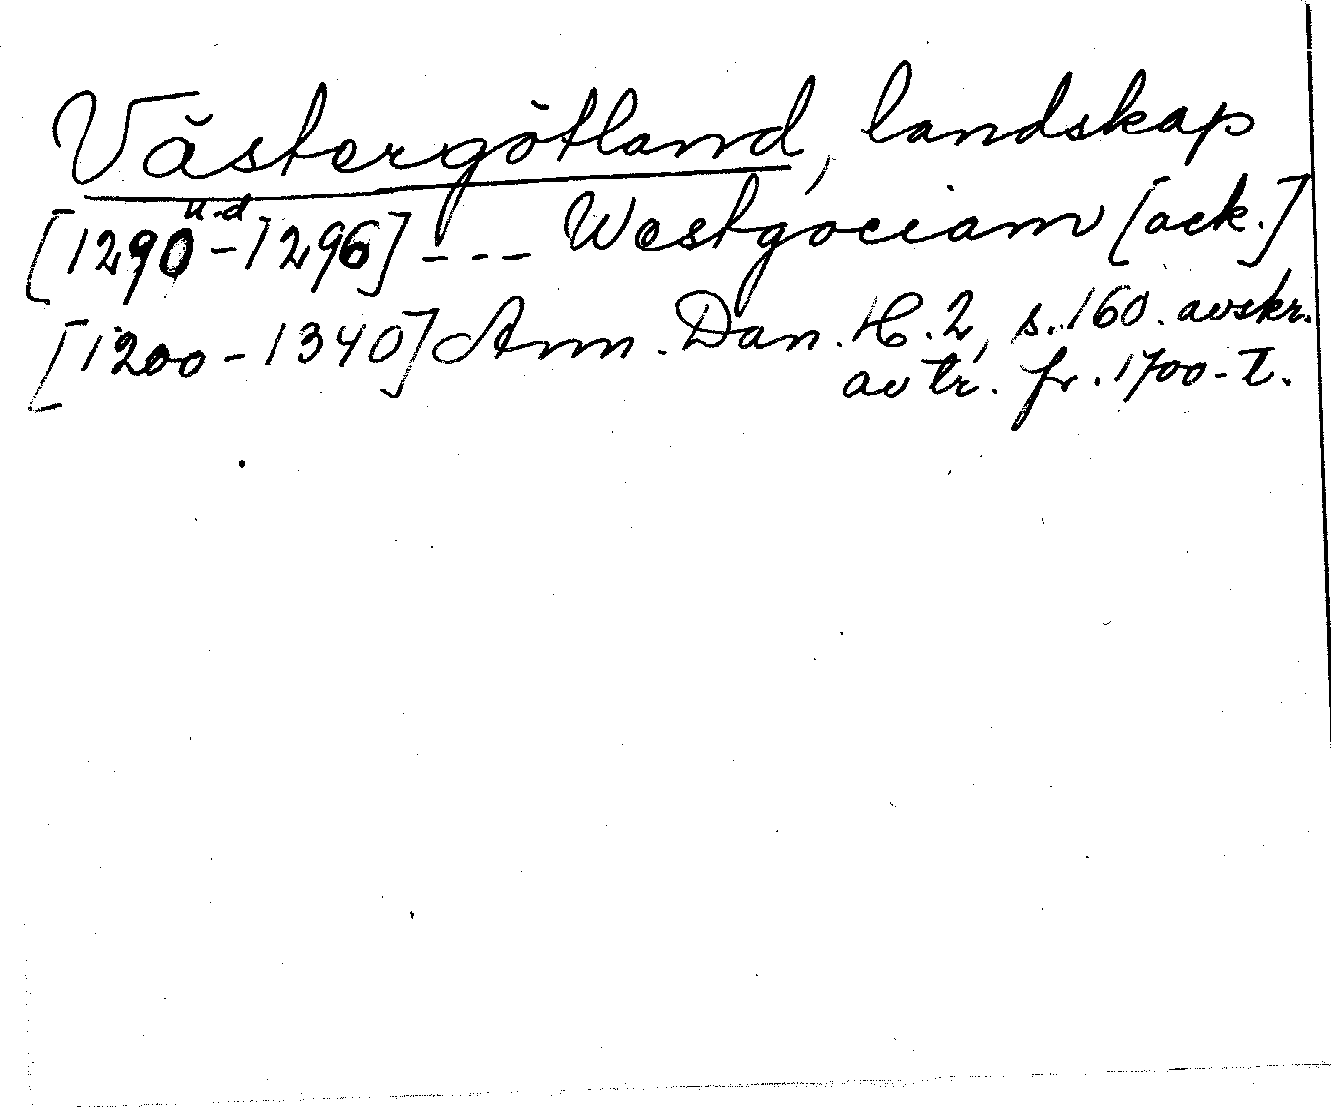 Västergötland, landskap
[1290 u-d -1296] --- Westgociam [ack.]
[1200-1340] Ann. Dan. H. 2, s. 160. avskr.
av tr. fr. 1700-t.